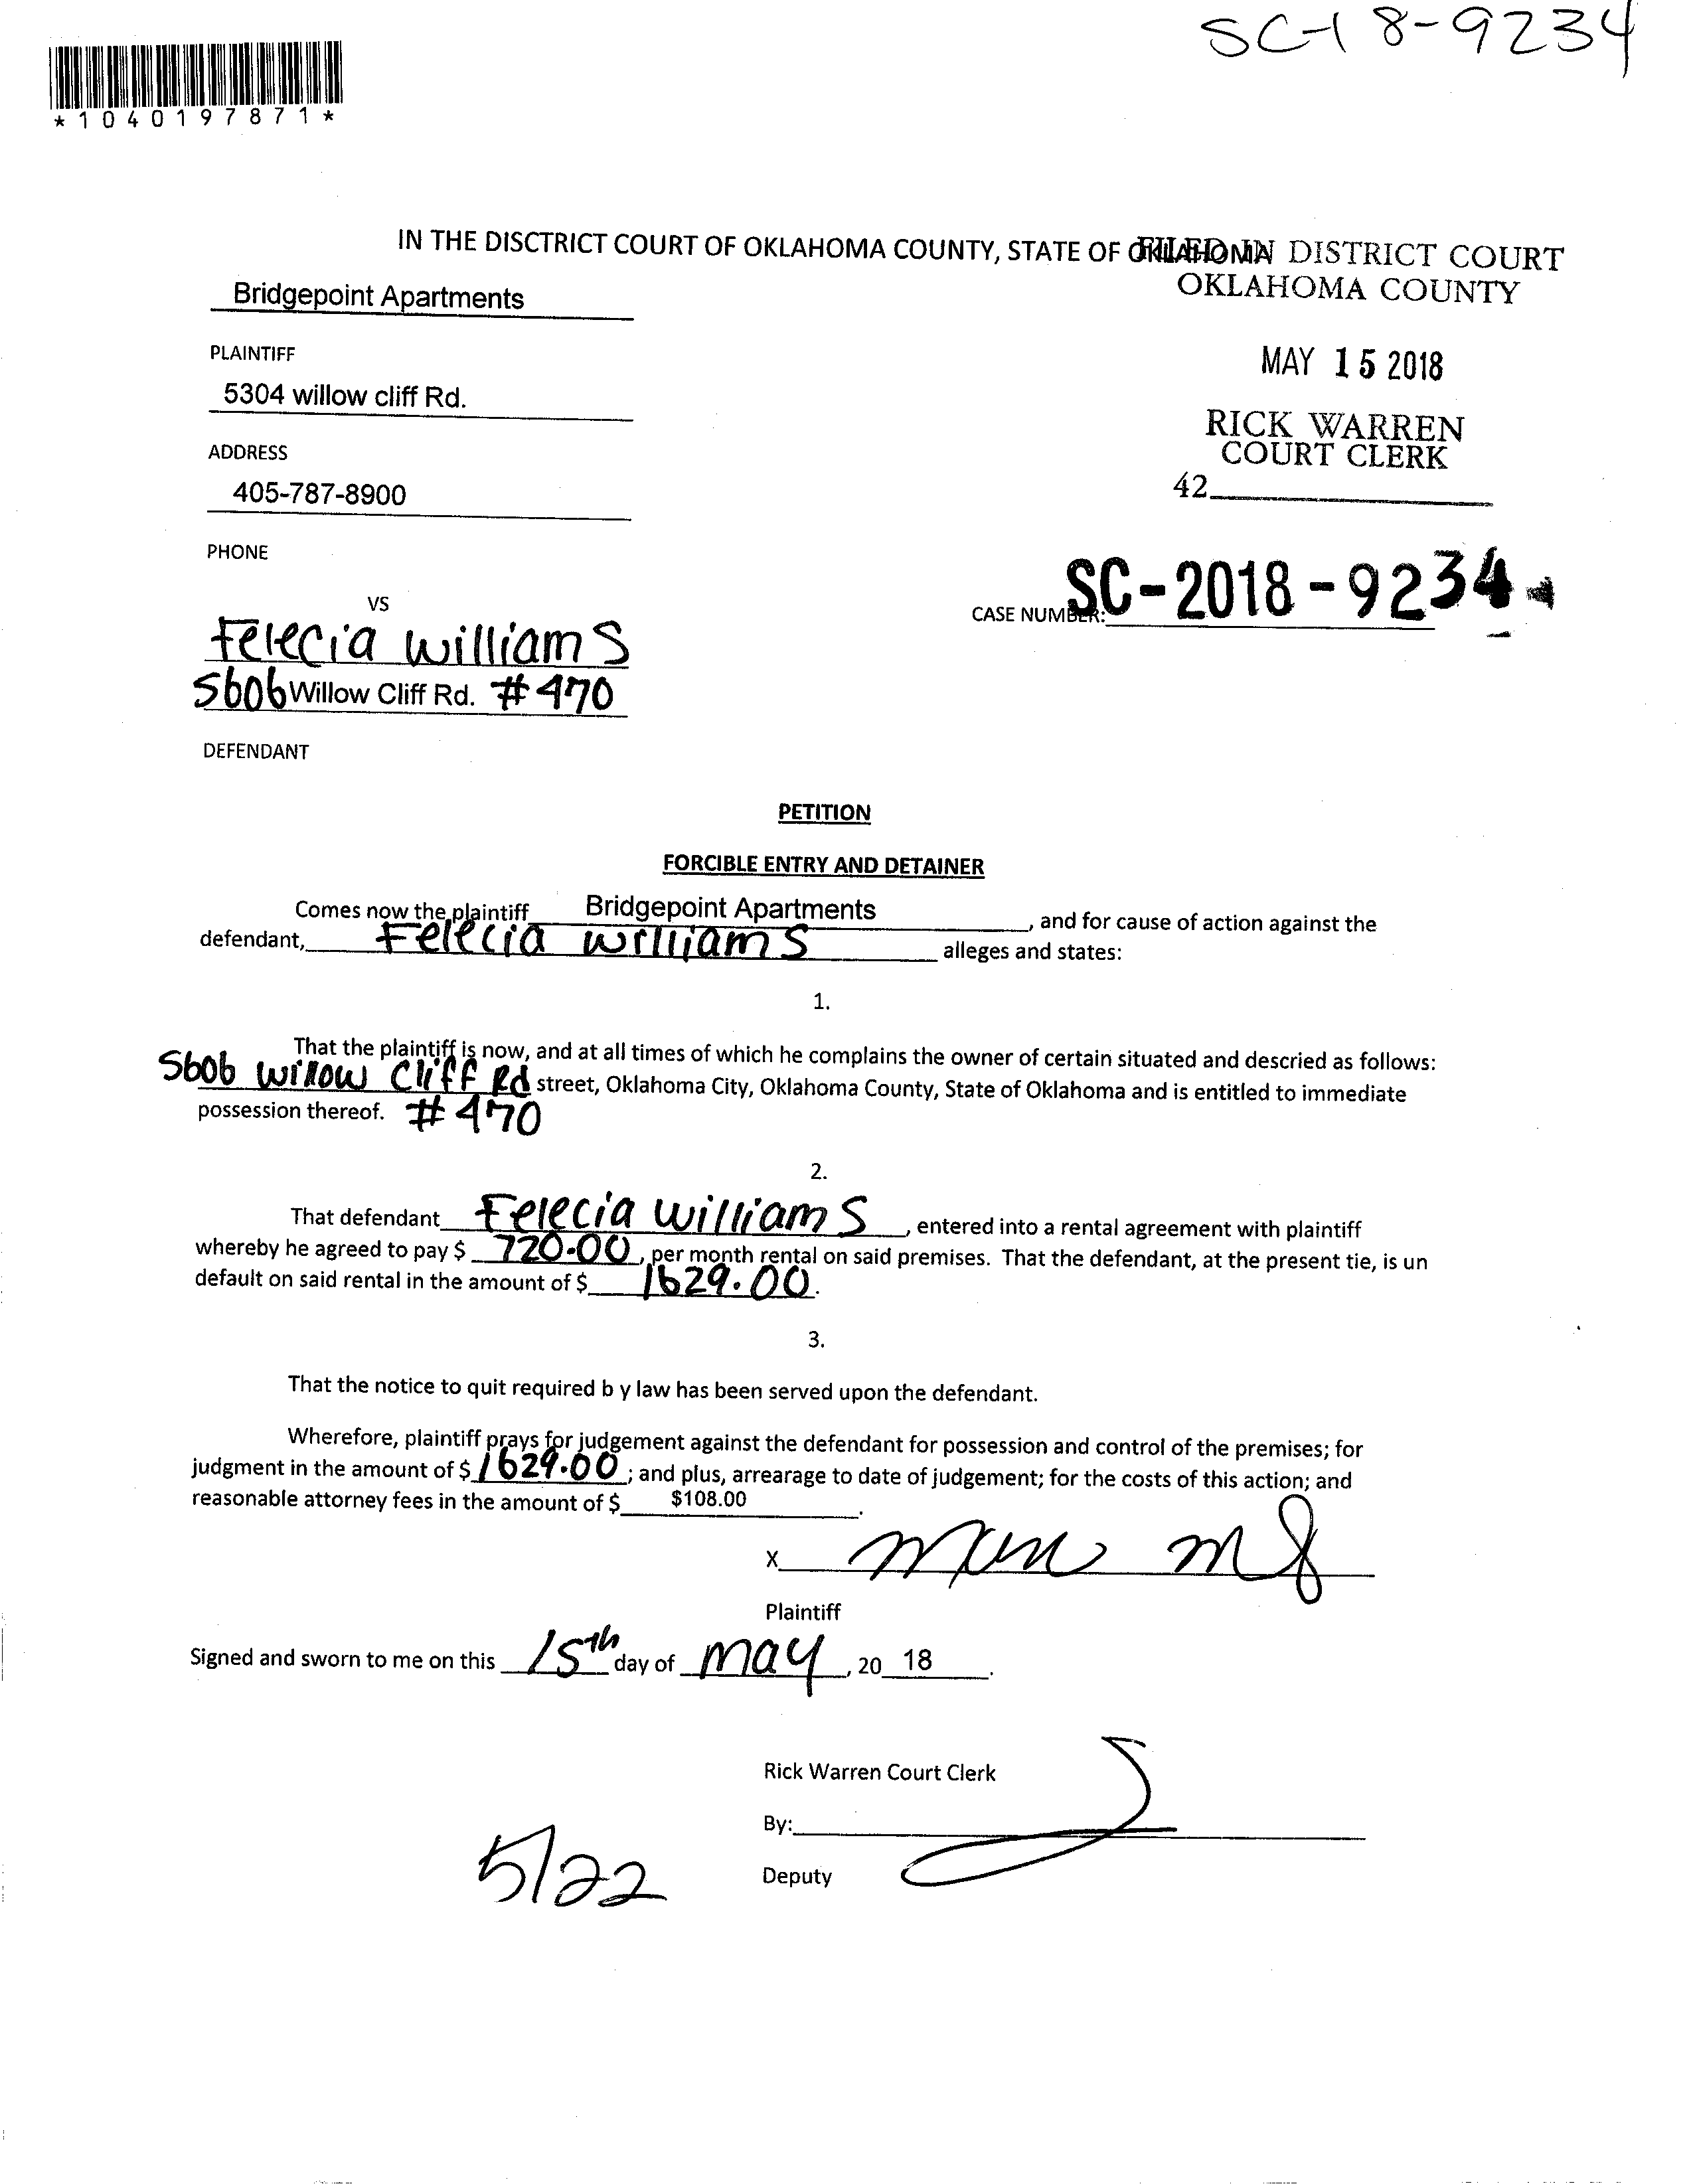 SC-18-9234
*1040197871*
IN THE DISCTRICT COURT OF OKLAHOMA COUNTY, STATE OF OKLAHOMA
FILED IN DISTRICT COURT
OKLAHOMA COUNTY
Bridgepoint Apartments
PLAINTIFF
MAY 15 2018
5304 willow cliff Rd.
RICK WARREN
COURT CLERK
ADDRESS
42
405-787-8900
PHONE
CASE NUMBER: SC-2018-9234
VS
Felecia Williams
5606 Willow Cliff Rd. #470
DEFENDANT
PETITION
FORCIBLE ENTRY AND DETAINER
Comes now the plaintiff Bridgepoint Apartments, and for cause of action against the
defendant, Felecia Williams alleges and states:
1.
That the plaintiff is now, and at all times of which he complains the owner of certain situated and descried as follows:
5606 Willow Cliff Rd street, Oklahoma City, Oklahoma County, State of Oklahoma and is entitled to immediate
possession thereof. #470
2.
That defendant Felecia Williams, entered into a rental agreement with plaintiff
whereby he agreed to pay $ 720.00, per month rental on said premises. That the defendant, at the present tie, is un
default on said rental in the amount of $ 1629.00.
3.
That the notice to quit required b y law has been served upon the defendant.
Wherefore, plaintiff prays for judgement against the defendant for possession and control of the premises; for
judgment in the amount of $ 1629.00; and plus, arrearage to date of judgement; for the costs of this action; and
reasonable attorney fees in the amount of $ $108.00.
X
Plaintiff
Signed and sworn to me on this 15th day of may, 20 18.
Rick Warren Court Clerk
By:
Deputy
5/22